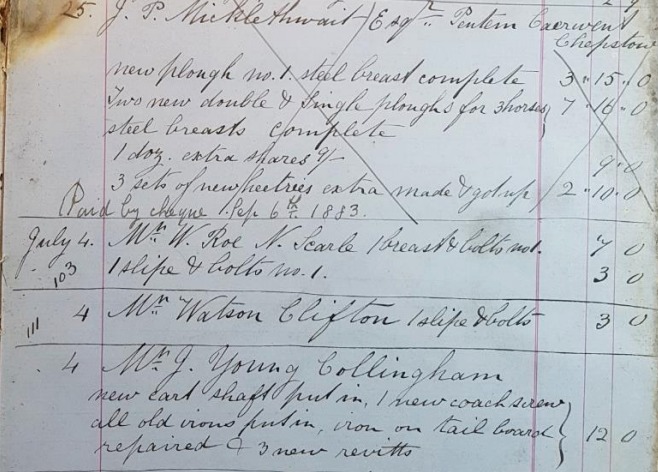 25. J. P. Micklethwait Esqr. Pentein Caerwent
Chepstow
new plough no. 1. steel breast complete 3 " 15 " 0
Two new double & single ploughs for 3 horses 7 " 16 " 0
steel breasts complete
1 doz. extra shares 9/- 9 " 0
3 sets of new heetries extra made & got up 2 " 10 " 0
Paid by cheque Sep 6th. 1883.
July 4. Mr. W. Roe N. Scarle 1 breast & bolts no 1. 7 0
103 1 slipe & bolts no. 1. 3 0
111 4 Mr. Watson Clifton 1 slipe & bolts 3 0
4 Mr. J. Young Collingham
new cart shaft put in, 1 new coach screw
all old irons put in, iron on tail board 12 0
repaired & 3 new revitts